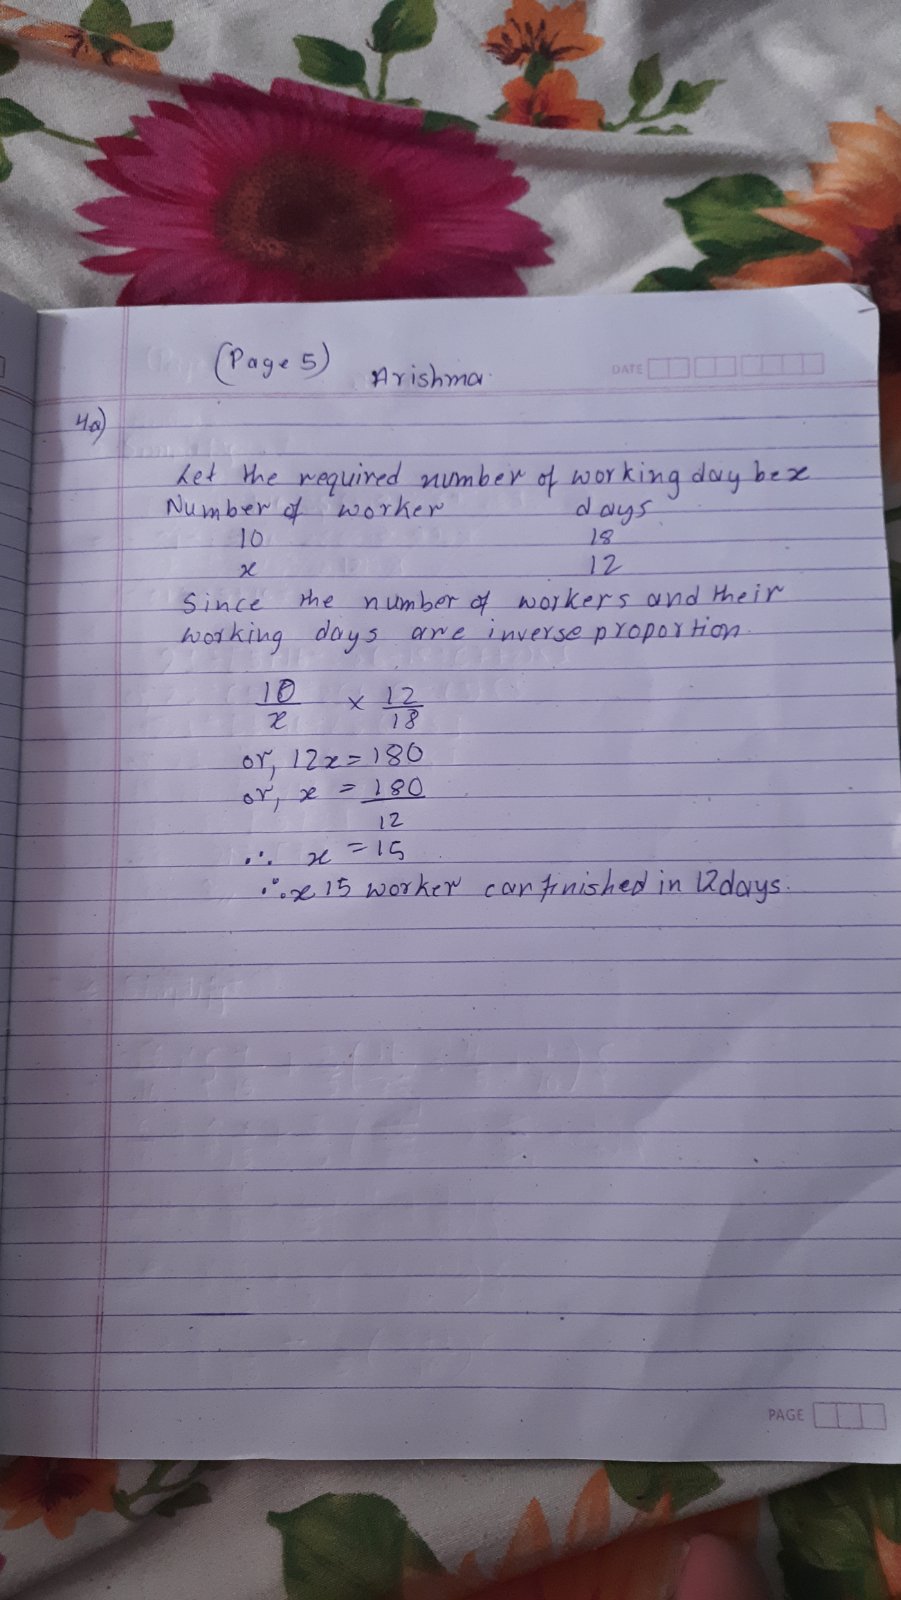 (Page 5)
Arishma
DATE
4a)
Let the required number of working day be x
Number of worker days
10 18
x 12
Since the number of workers and their
working days are inverse proportion.
10/x × 12/18
or, 12x = 180
or, x = 180/12
∴ x = 15
∴ x 15 worker can finished in 12 days.
PAGE